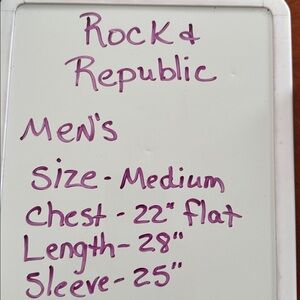 Rock &
Republic
Men's
Size - Medium
Chest - 22" flat
Length - 28"
Sleeve - 25"